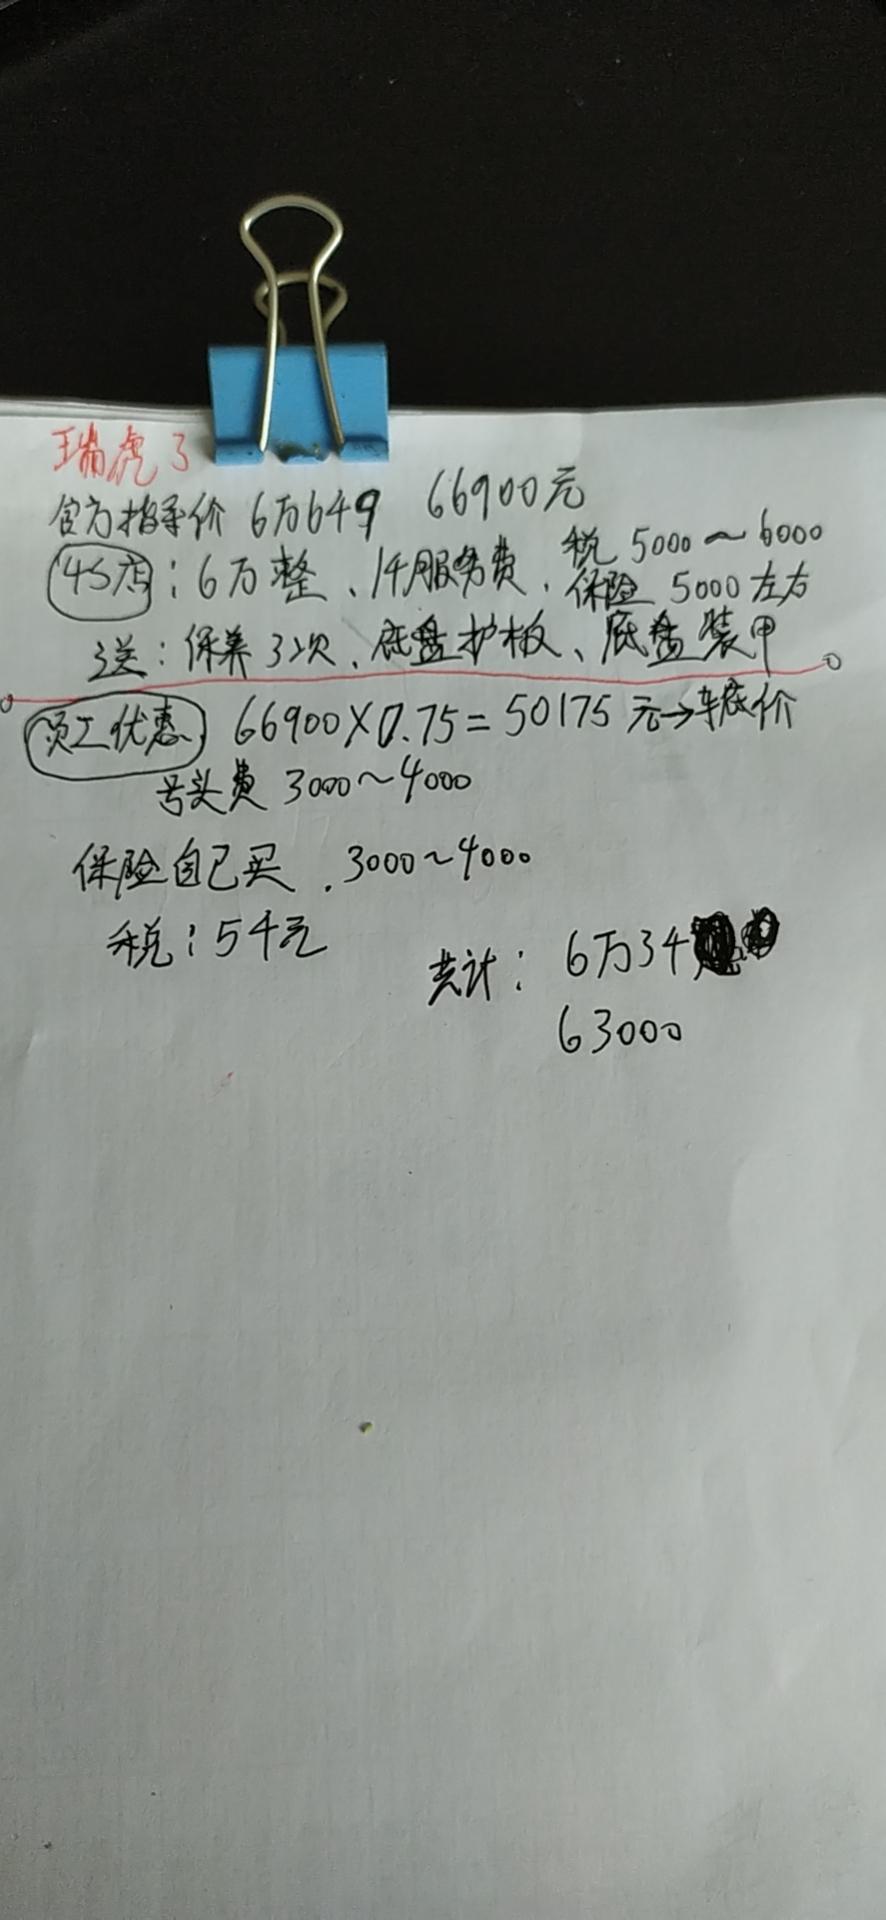 瑞虎3
官方指导价 6万6千9 66900元
4S店：6万整、1千服务费、税 5000～6000
保险 5000左右
送：保养3次、底盘护板、底盘装甲
员工优惠 66900×0.75=50175元→车底价
号头费 3000～4000
保险自己买．3000～4000
税：5千元
共计：6万3千
63000